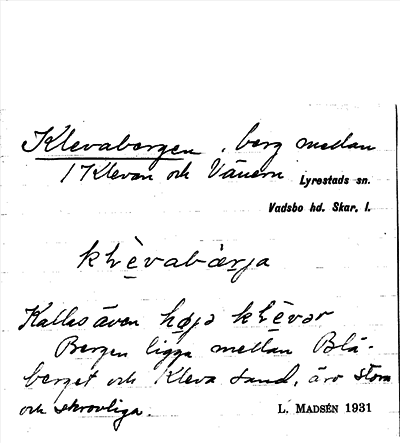 Klevabergen, berg mellan
1 Klevan och Vänern Lyrestads sn.
Vadsbo hd. Skar. l.
Kallas även
Bergen ligga mellan Blå-
berget och Kleva sand, äro stora
och skrovliga. L. MADSÉN 1931